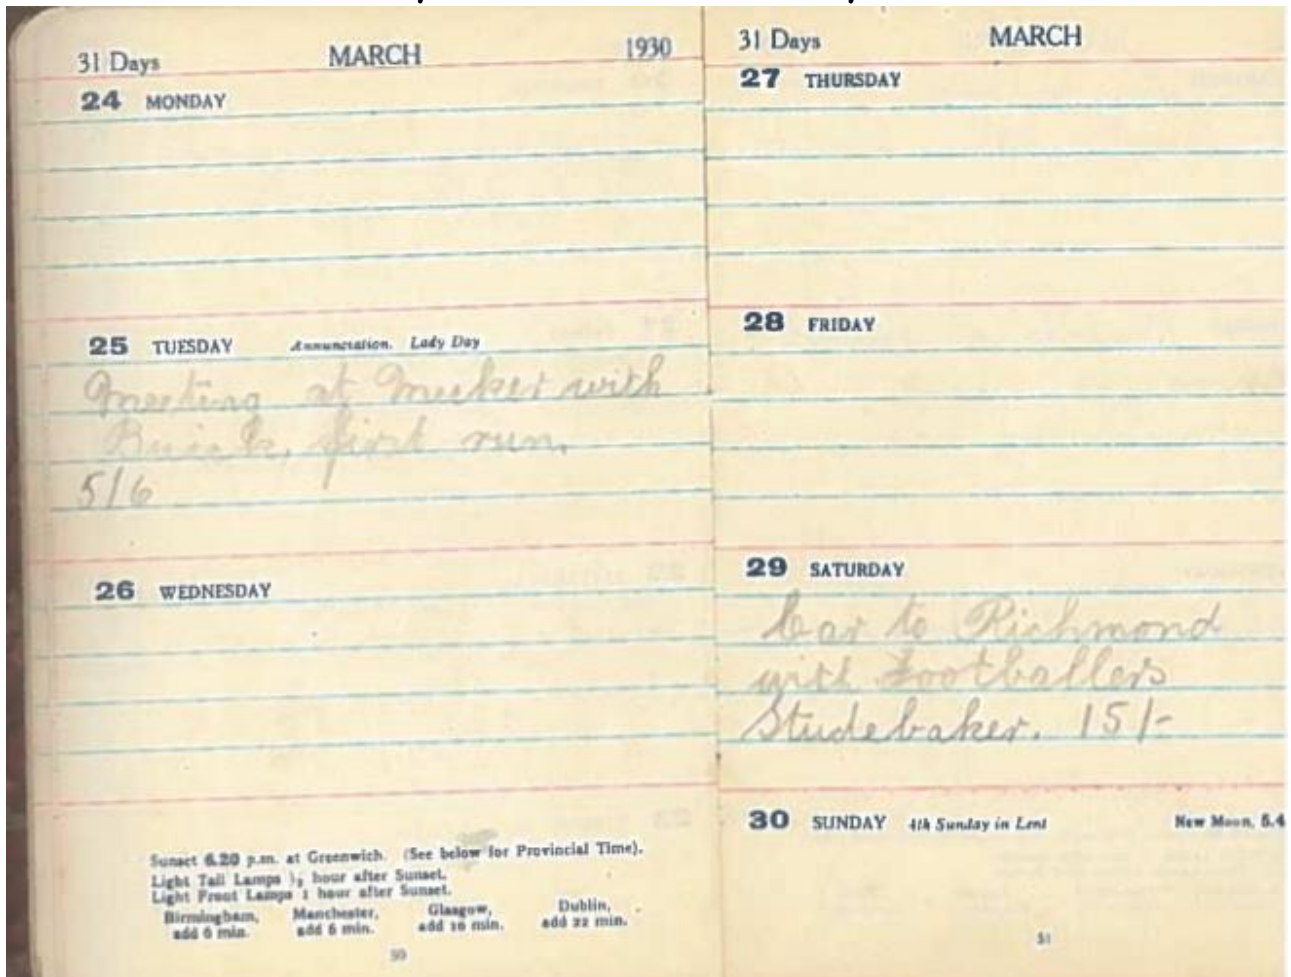 31 Days MARCH 1930
24 MONDAY
25 TUESDAY Annunciation. Lady Day
Meeting at Meeker with
Buick, first run.
5/6
26 WEDNESDAY
Sunset 6.20 p.m. at Greenwich. (See below for Provincial Time).
Light Tail Lamps ½ hour after Sunset.
Light Front Lamps 1 hour after Sunset.
Birmingham, Manchester, Glasgow, Dublin,
add 6 min. add 6 min. add 16 min. add 22 min.
50
31 Days MARCH
27 THURSDAY
28 FRIDAY
29 SATURDAY
Car to Richmond
with footballers
Studebaker. 15/-
30 SUNDAY 4th Sunday in Lent New Moon, 5.4
51